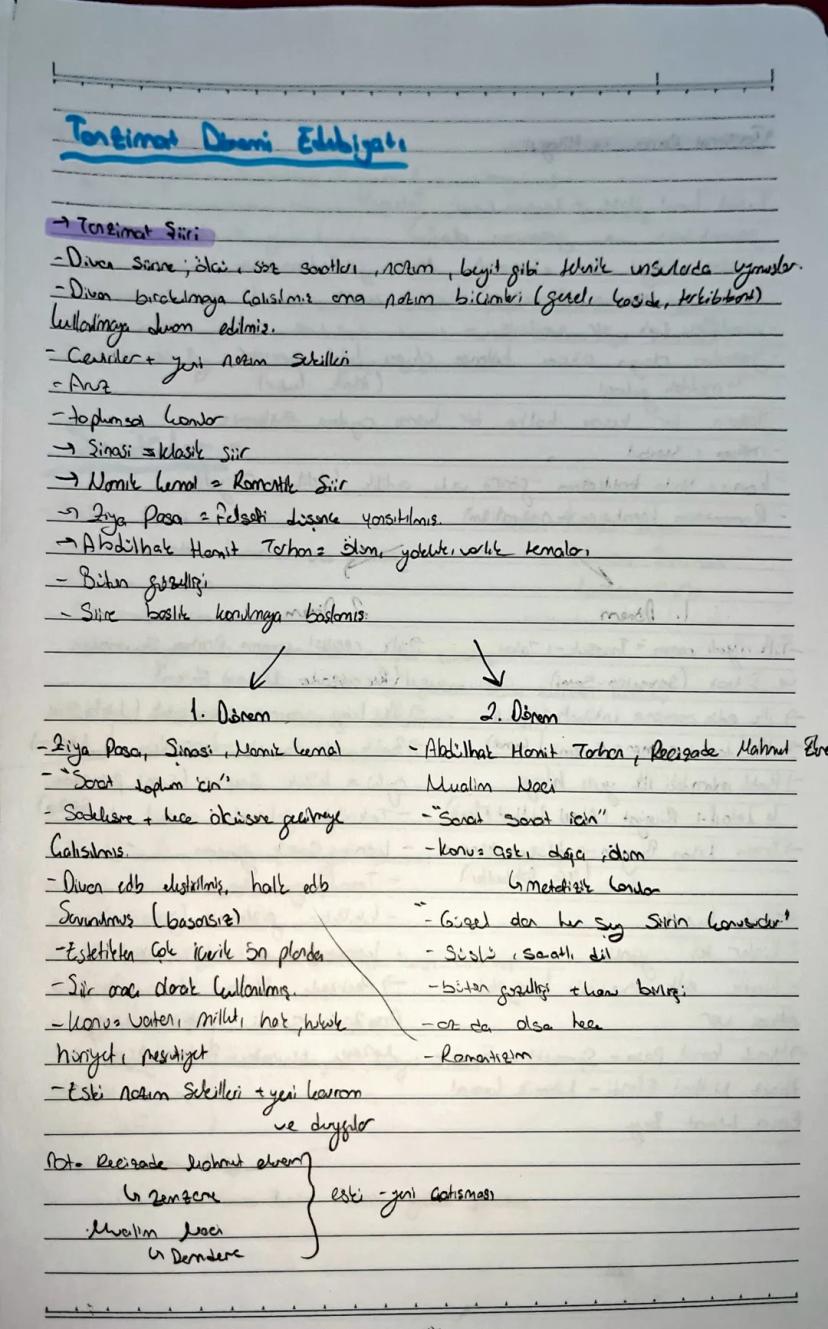 Tanzimat Dönemi Edebiyatı
→ Tanzimat Şiiri
- Divan şiirine; ölçü, söz sanatları, nazım, beyit gibi teknik unsurlarda uymuşlar.
- Divan bırakılmaya çalışılmış ama nazım biçimleri (gazel, kaside, terkibibent)
kullanılmaya devam edilmiş.
- Çeviriler + yeni nazım şekilleri
- Aruz
- toplumsal konular
→ Şinasi = klasik şiir
→ Namık Kemal = Romantik Şiir
→ Ziya Paşa = Felsefi düşünce yansıtılmış.
→ Abdülhak Hamit Tarhan = ölüm, yokluk, varlık temaları
- Bütün güzelliği
- Şiire başlık konulmaya başlanmış.
1. Dönem
- Ziya Paşa, Şinasi, Namık Kemal
- "Sanat toplum için"
- Sadeleşme + hece ölçüsüne geçilmeye
Çalışılmış.
- Divan edb eleştirilmiş, halk edb
Savunulmuş (başarısız)
- Estetikten çok içerik ön planda
- Şiir araç olarak kullanılmış.
- Konu = vatan, millet, hak, hukuk
hürriyet, meşrutiyet
- Eski nazım şekilleri + yeni kavram
ve duygular
2. Dönem
- Abdülhak Hamit Tarhan, Recizade Mahmut Ekre
Mualim Naci
- "Sanat sanat için"
- Konu = aşk, doğa, ölüm
↳ metafizik konular
"- Güzel olan her şey şiirin konusudur"
- Süslü, sanatlı dil
- bütün güzelliği + konu birliği
- az da olsa hece
- Romantizim
Not - Recizade Mahmut ekrem
↳ zemzeme
eski - yeni çatışması
Mualim Naci
↳ Demdeme